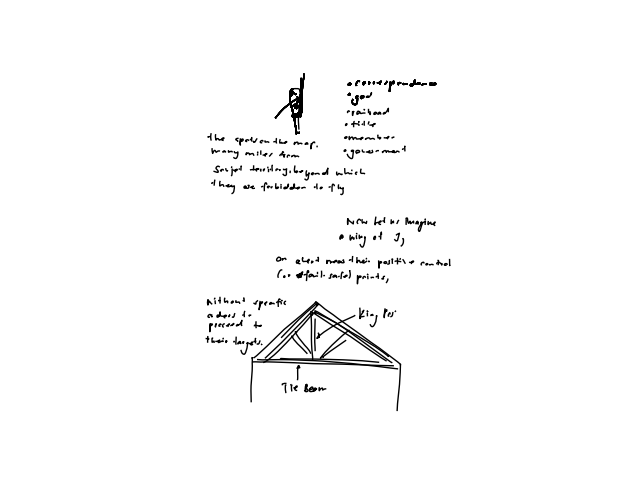 • correspondence
• god
• railroad
• title
• member
• government
the spots on the map,
many miles from
Soviet territory, beyond which
they are forbidden to fly
Now let us imagine
a wing of
on alert near their positive control
(or fail-safe) points,
without specific
orders to
proceed to
their targets.
King Pos
Tie Beam